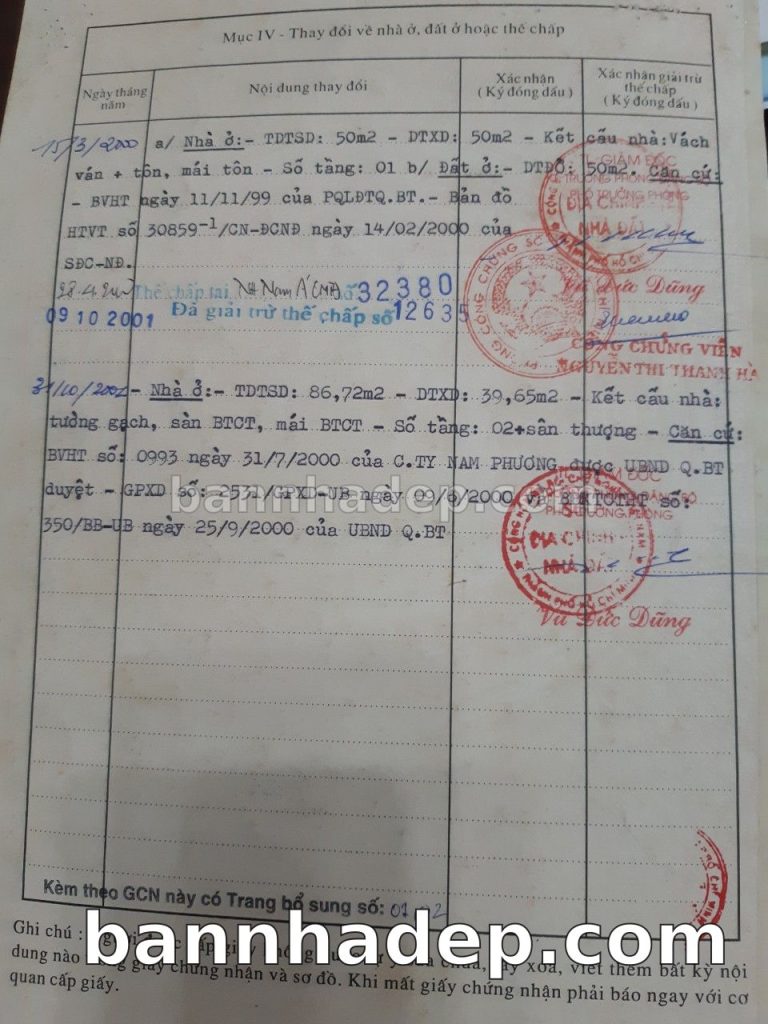 Mục IV - Thay đổi về nhà ở, đất ở hoặc thế chấp
Ngày tháng năm
Nội dung thay đổi
Xác nhận
( Ký đóng dấu )
Xác nhận giải trừ
thế chấp
( Ký đóng dấu )
15/3/2000 a/ Nhà ở:- TDTSD: 50m2 - DTXD: 50m2 - Kết cấu nhà:Vách
ván + tôn, mái tôn - Số tầng: 01 b/ Đất ở:- DTĐO: 50m2 Căn cứ:
- BVHT ngày 11/11/99 của PQLĐTQ.BT.- Bản đồ
HTVT số 30859-1/CN-ĐCNĐ ngày 14/02/2000 của
SĐC-NĐ.
GIÁM ĐỐC
PHÓ TRƯỞNG PHÒNG
ĐỊA CHÍNH
NHÀ ĐẤT
Vũ Đức Dũng
Thế chấp tại NH Nam Á số 32380
09 10 2001 Đã giải trừ thế chấp số 12635
PHÒNG CÔNG CHỨNG SỐ
CÔNG CHỨNG VIÊN
NGUYỄN THỊ THANH HÀ
- Nhà ở:- TDTSD: 86,72m2 - DTXD: 39,65m2 - Kết cấu nhà:
tường gạch, sàn BTCT, mái BTCT - Số tầng: 02+sân thượng - Căn cứ:
BVHT số: 0993 ngày 31/7/2000 của C.TY NAM PHƯƠNG được UBND Q.BT
duyệt - GPXD số: 2531/GPXD-UB ngày 09/6/2000 và số:
350/BB-UB ngày 25/9/2000 của UBND Q.BT
bannhadep.com
GIÁM ĐỐC
PHÓ TRƯỞNG PHÒNG
ĐỊA CHÍNH
NHÀ ĐẤT
THÀNH PHỐ HỒ CHÍ MINH
Vũ Đức Dũng
Kèm theo GCN này có Trang bổ sung số: 01
bannhadep.com
Ghi chú :
dung nào giấy chứng nhận và sơ đồ. Khi mất giấy chứng nhận phải báo ngay với cơ
quan cấp giấy.
xóa, viết thêm bất kỳ nội